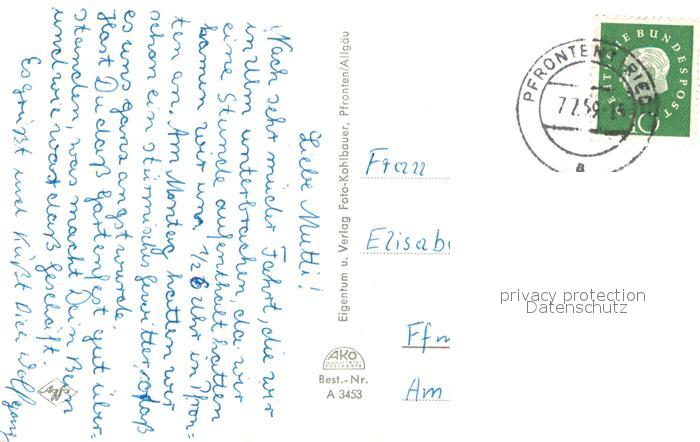 Liebe Mutti!
Nach sehr müder Fahrt, die wir
in Ulm unterbrachen, da wir
eine Stunde aufenthalt hatten
kamen wir um 1/2 6 Uhr in Pfron=
ten an. Am Montag hatten wir
schon ein stürmisches gewitter, sodaß
es uns ganz angst wurde.
Hast Du daß gartenfest gut über=
standen, was macht Dein Bein
und wie war daß geschäft.
Es grüßt und küßt Dich Wolfgang
Agfa
Eigentum u. Verlag Foto-Kohlbauer, Pfronten/Allgäu
AKO
Best.-Nr.
A 3453
Frau
Elisab
Ffm
Am
PFRONTEN-RIED
7.7.59-14
a
DEUTSCHE BUNDESPOST
10
privacy protection
Datenschutz